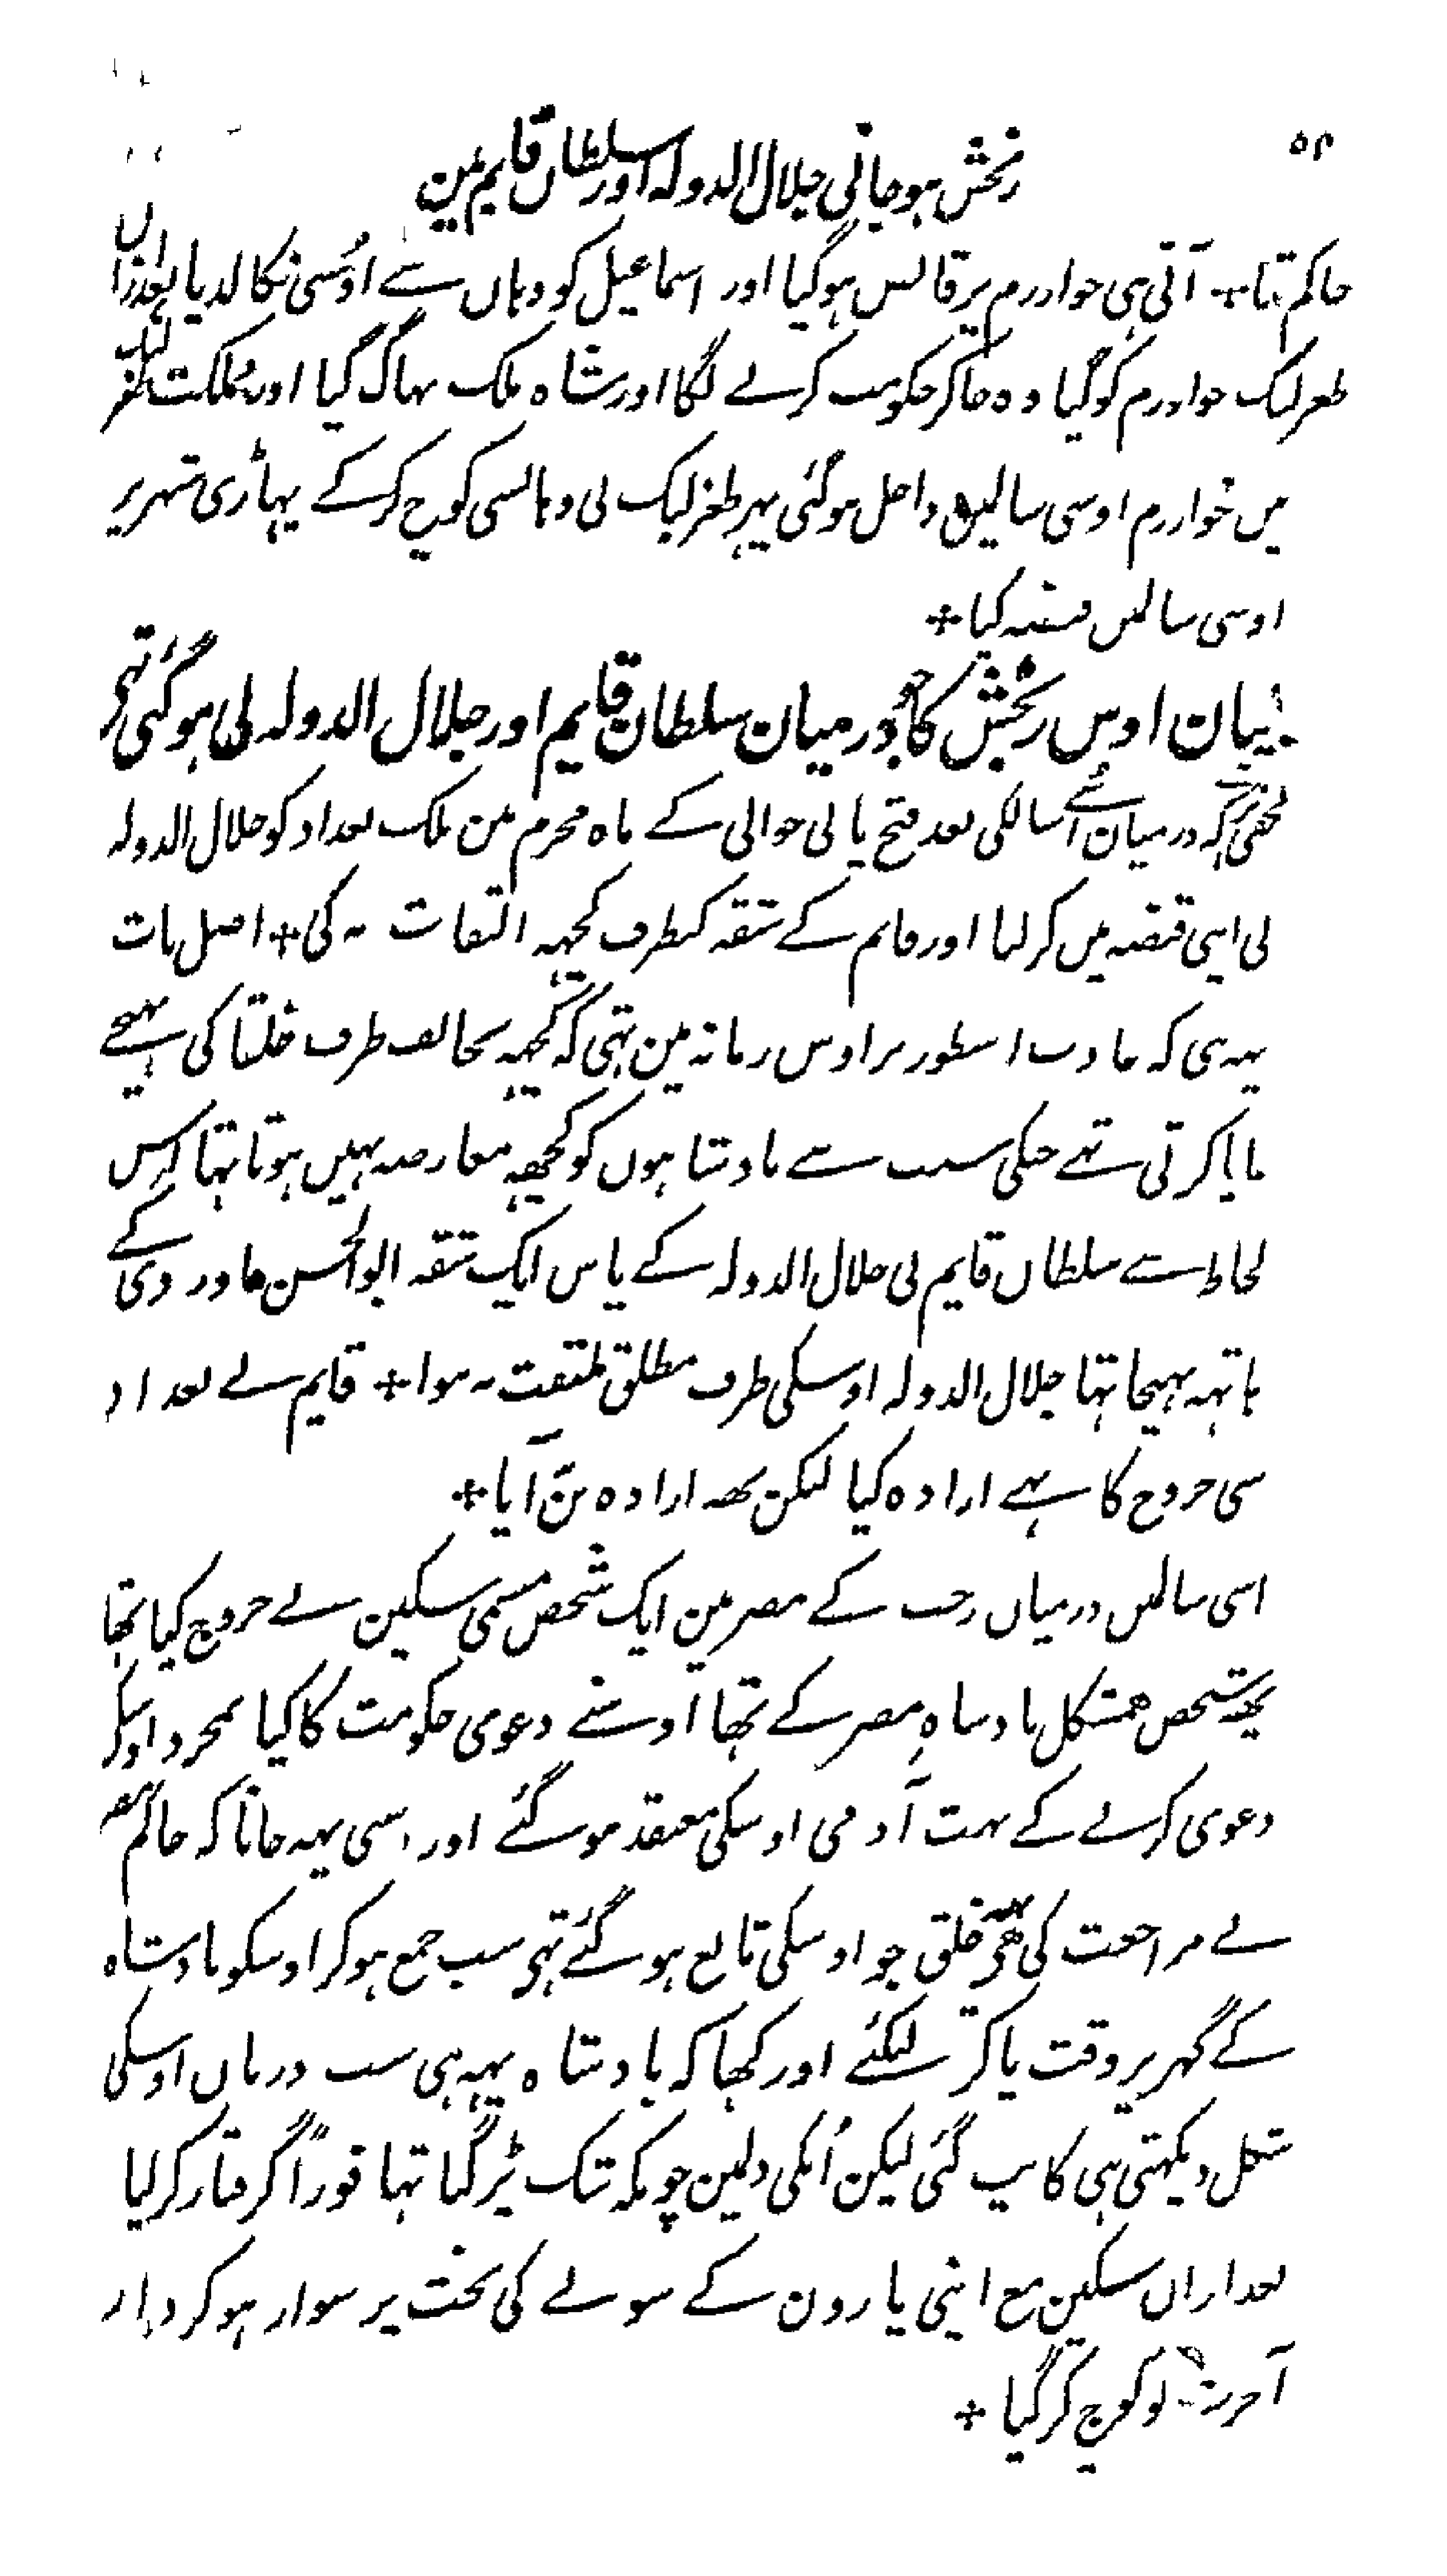 ۵۲
رنجش ہوجانی جلال الدولہ اور سلطان قایم مین
حاکم تہا + آتی ہی خوارزم پر قابض ہوگیا اور اسماعیل کو وہاں سے اوُسی نکالدیا بعدازاں
طغرلبک خوارزم کو گیا وہ جاکر حکومت کرنے لگا اور شاہ ملک بہاگ گیا اور مملکت طغرلبک
میں خوارزم اوسی سالمیں داخل ہوگئی پہر طغرلبک نی وہانسی کوچ کرکے پہاڑی شہر پر
اوسی سالمیں قبضہ کیا +
بیان اوس رنجش کا جو درمیان سلطان قایم اور جلال الدولہ نی ہوگئی تہی
مخفی نرہے کہ درمیان اسُ سالکی بعد فتح یابی حوالی کے ماہ محرم مین ملک بغداد کو جلال الدولہ
نی اپنی قبضہ میں کرلیا اور قایم کے شقہ کیطرف کچہہ التفات نہ کی + اصل بات
یہہ ہی کہ عادت اسطور پر اوس زمانہ مین تہی کہ کچہہ تحالف طرف خلفا کی بہیجے
جایا کرتی تہے جسکی سبب سے بادشاہوں کو کچھہ معارضہ نہیں ہوتا تہا اس
لحاظ سے سلطان قایم نی جلال الدولہ کے پاس ایک شقہ ابوالحسن ماوردی کے
ہاتہہ بہیجا تہا جلال الدولہ اوسکی طرف مطلق ملتفت نہ ہوا + قایم نے بغداد
سی خروج کا بہے ارادہ کیا لیکن یھہ ارادہ بن آیا +
اسی سالمیں درمیاں رجب کے مصر مین ایک شخص مسمی سکین نے خروج کیا تھا
یھہ شخص ھمشکل بادساہِ مصر کے تھا اوسنے دعوی حکومت کا کیا بمجرد اوسکے
دعوی کرنے کے بہت آدمی اوسکی معتقد ہوگئے اور اسی یہہ جانا کہ حاکم مصر
نے مراجعت کی ھی خلق جو اوسکی تابع ہوگئے تہی سب جمع ہوکر اوسکو بادشاہ
کے گہر پر وقت پاکر لیگئے اور کھا کہ بادشاہ یہہ ہی سب درباں اوسکی
شکل دیکہتی ہی کانپ گئی لیکن اُنکی دلمین چونکہ شک پڑ گیا تہا فوراً گرفتار کرلیا
بعد ازاں سکین مع اپنی یارون کے سولے کی تخت پر سوار ہوکر دار
آخرت کو کوچ کرگیا +